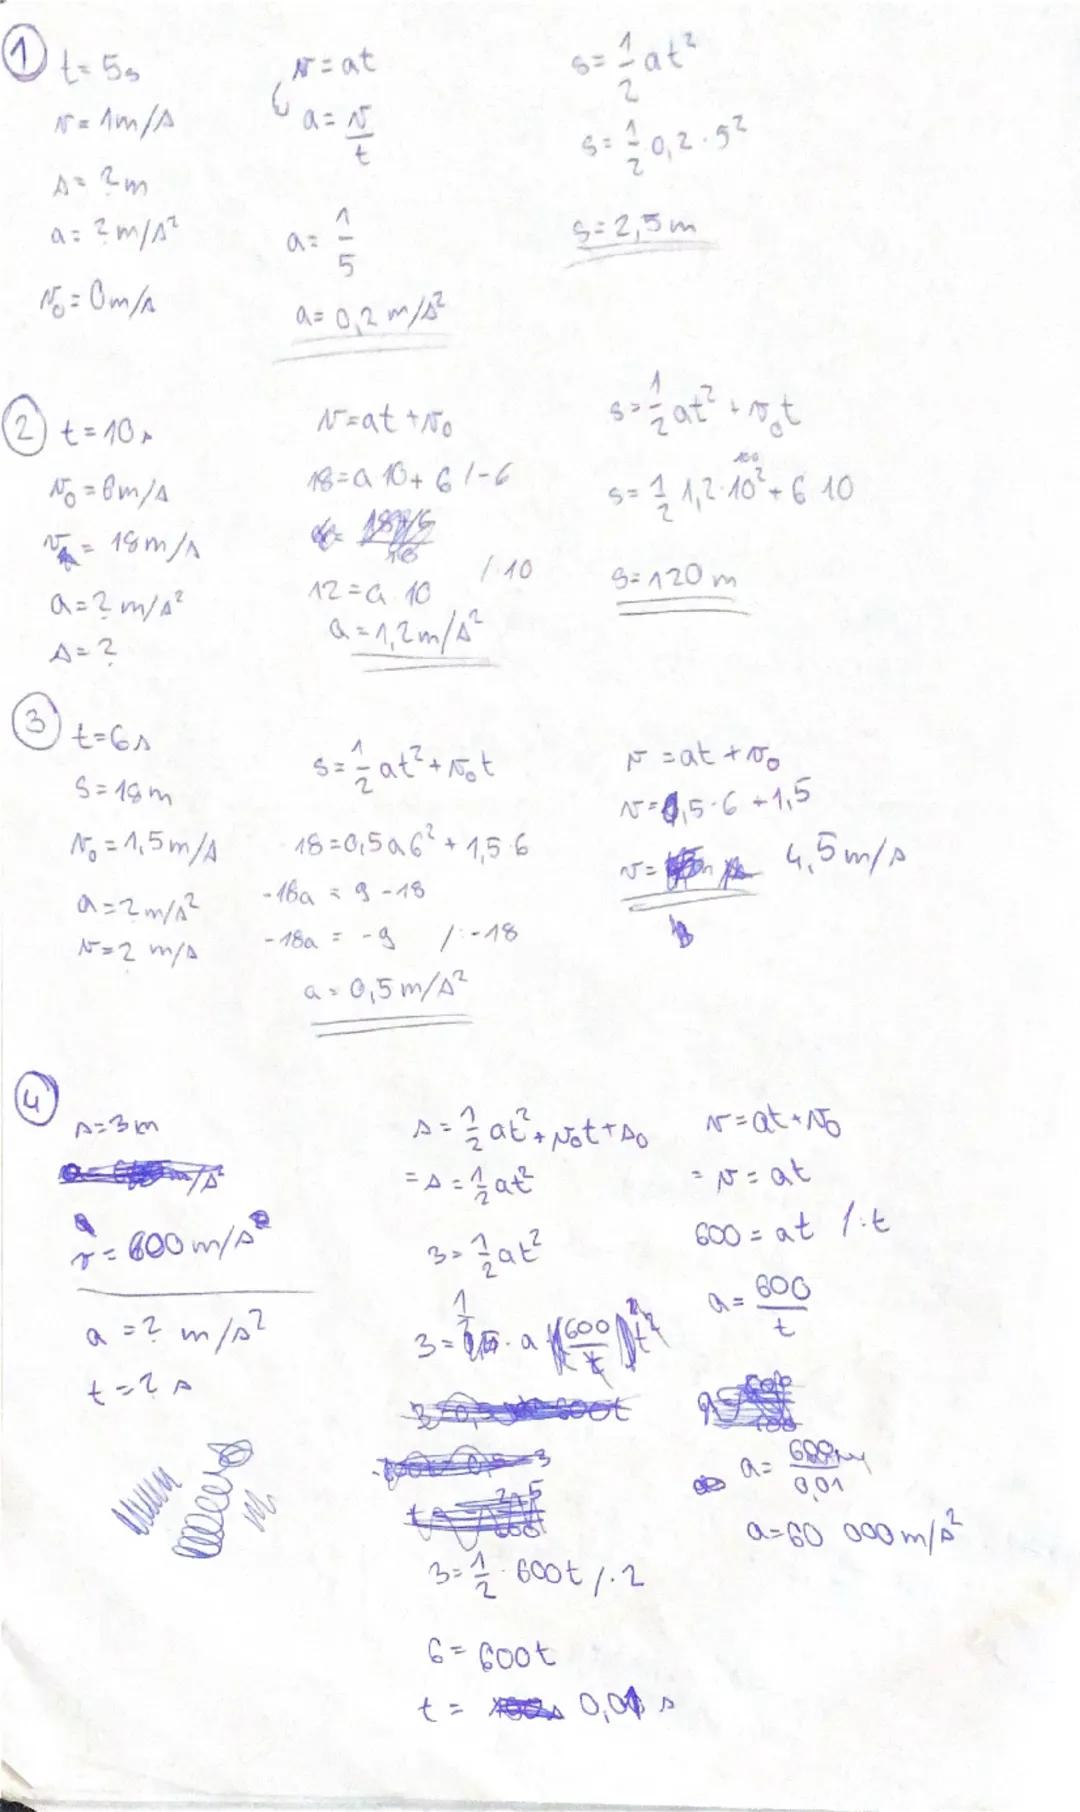 1
t = 5s
v = 1m/s
s = ? m
a = ? m/s²
v₀ = 0m/s
v = at
a = v/t
a = 1/5
a = 0,2 m/s²
s = 1/2 at²
s = 1/2 0,2 · 5²
s = 2,5m
2
t = 10s
v₀ = 6m/s
v = 18m/s
a = ? m/s²
s = ?
v = at + v₀
18 = a 10 + 6 /-6
12 = a · 10 /: 10
a = 1,2m/s²
s = 1/2 at² + v₀t
100
s = 1/2 1,2 · 10² + 6 10
s = 120 m
3
t = 6s
s = 18m
v₀ = 1,5m/s
a = ? m/s²
v = ? m/s
s = 1/2 at² + v₀t
18 = 0,5 a 6² + 1,5 · 6
-18a = 9 - 18
-18a = -9 /: -18
a = 0,5m/s²
v = at + v₀
v = 0,5 · 6 + 1,5
v = 4,5m/s
4
s = 3m
v = 600m/s
a = ? m/s²
t = ? s
s = 1/2 at² + v₀t + s₀
= s = 1/2 at²
3 = 1/2 at²
3 = 1/2 · a
3 = 1/2 · 600t / · 2
6 = 600t
t = 0,01 s
v = at + v₀
= v = at
600 = at /: t
a = 600/t
a = 600/0,01
a = 60 000m/s²